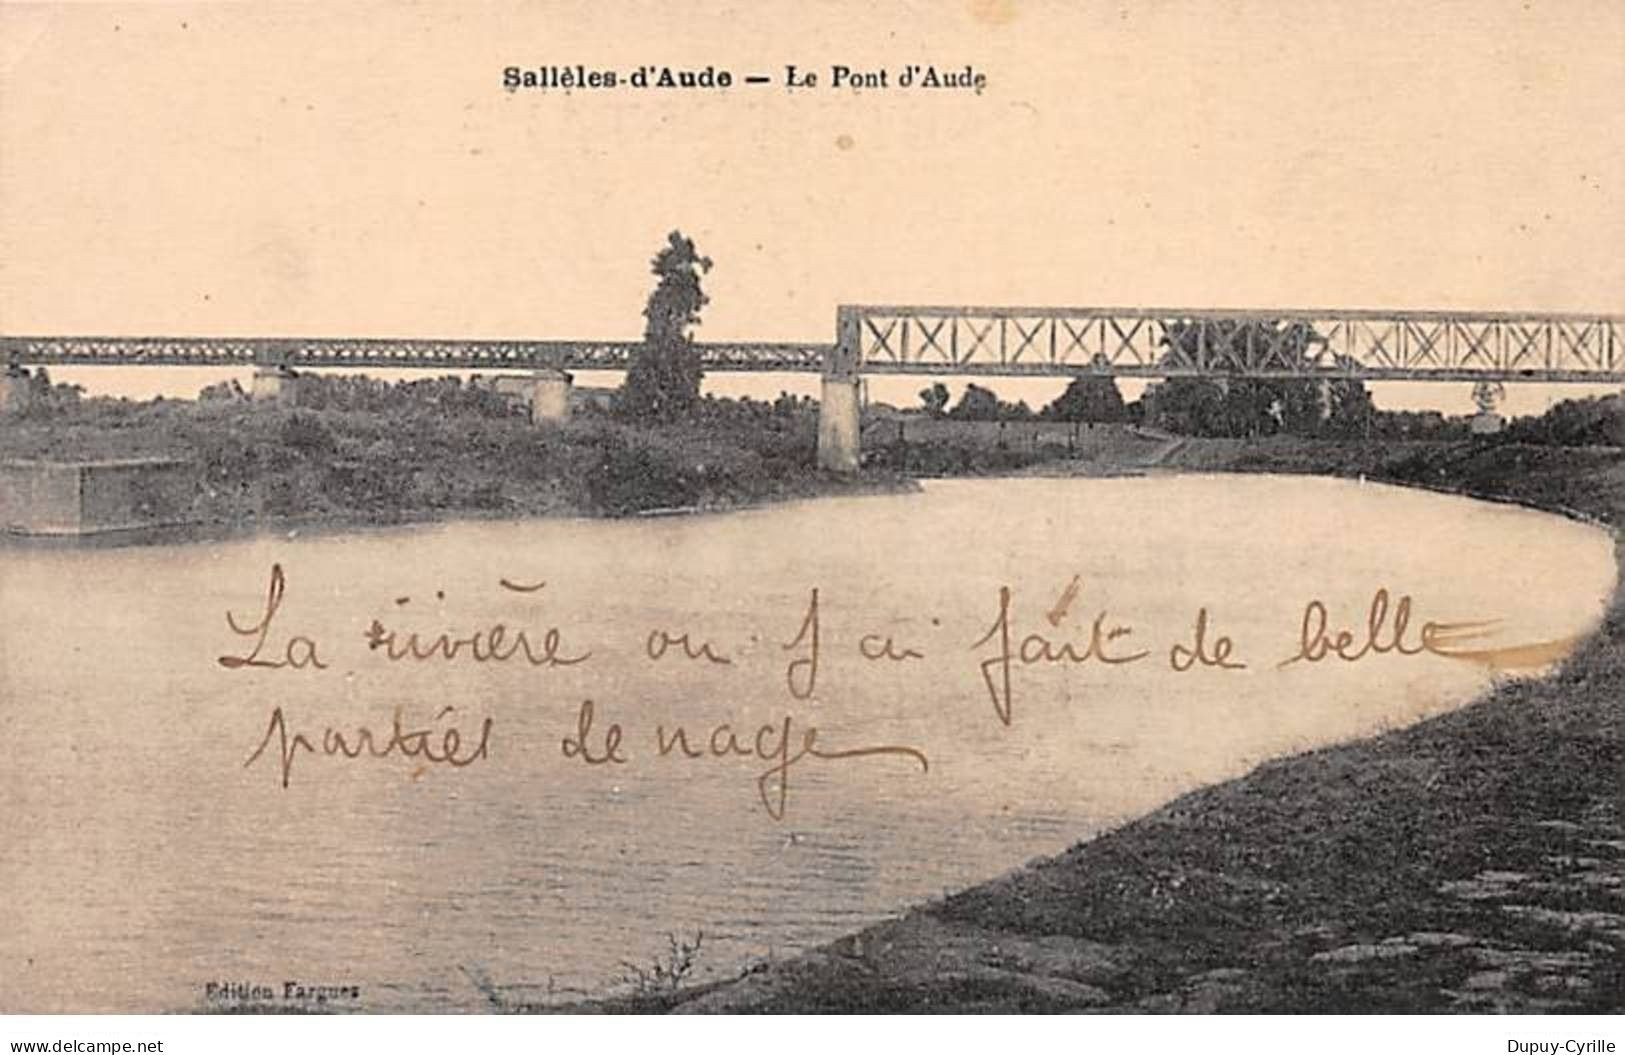 Sallèles-d'Aude — Le Pont d'Aude
La rivière ou j ai fait de belle
partiés de nage
Edition Fargues
www.delcampe.net
Dupuy-Cyrille